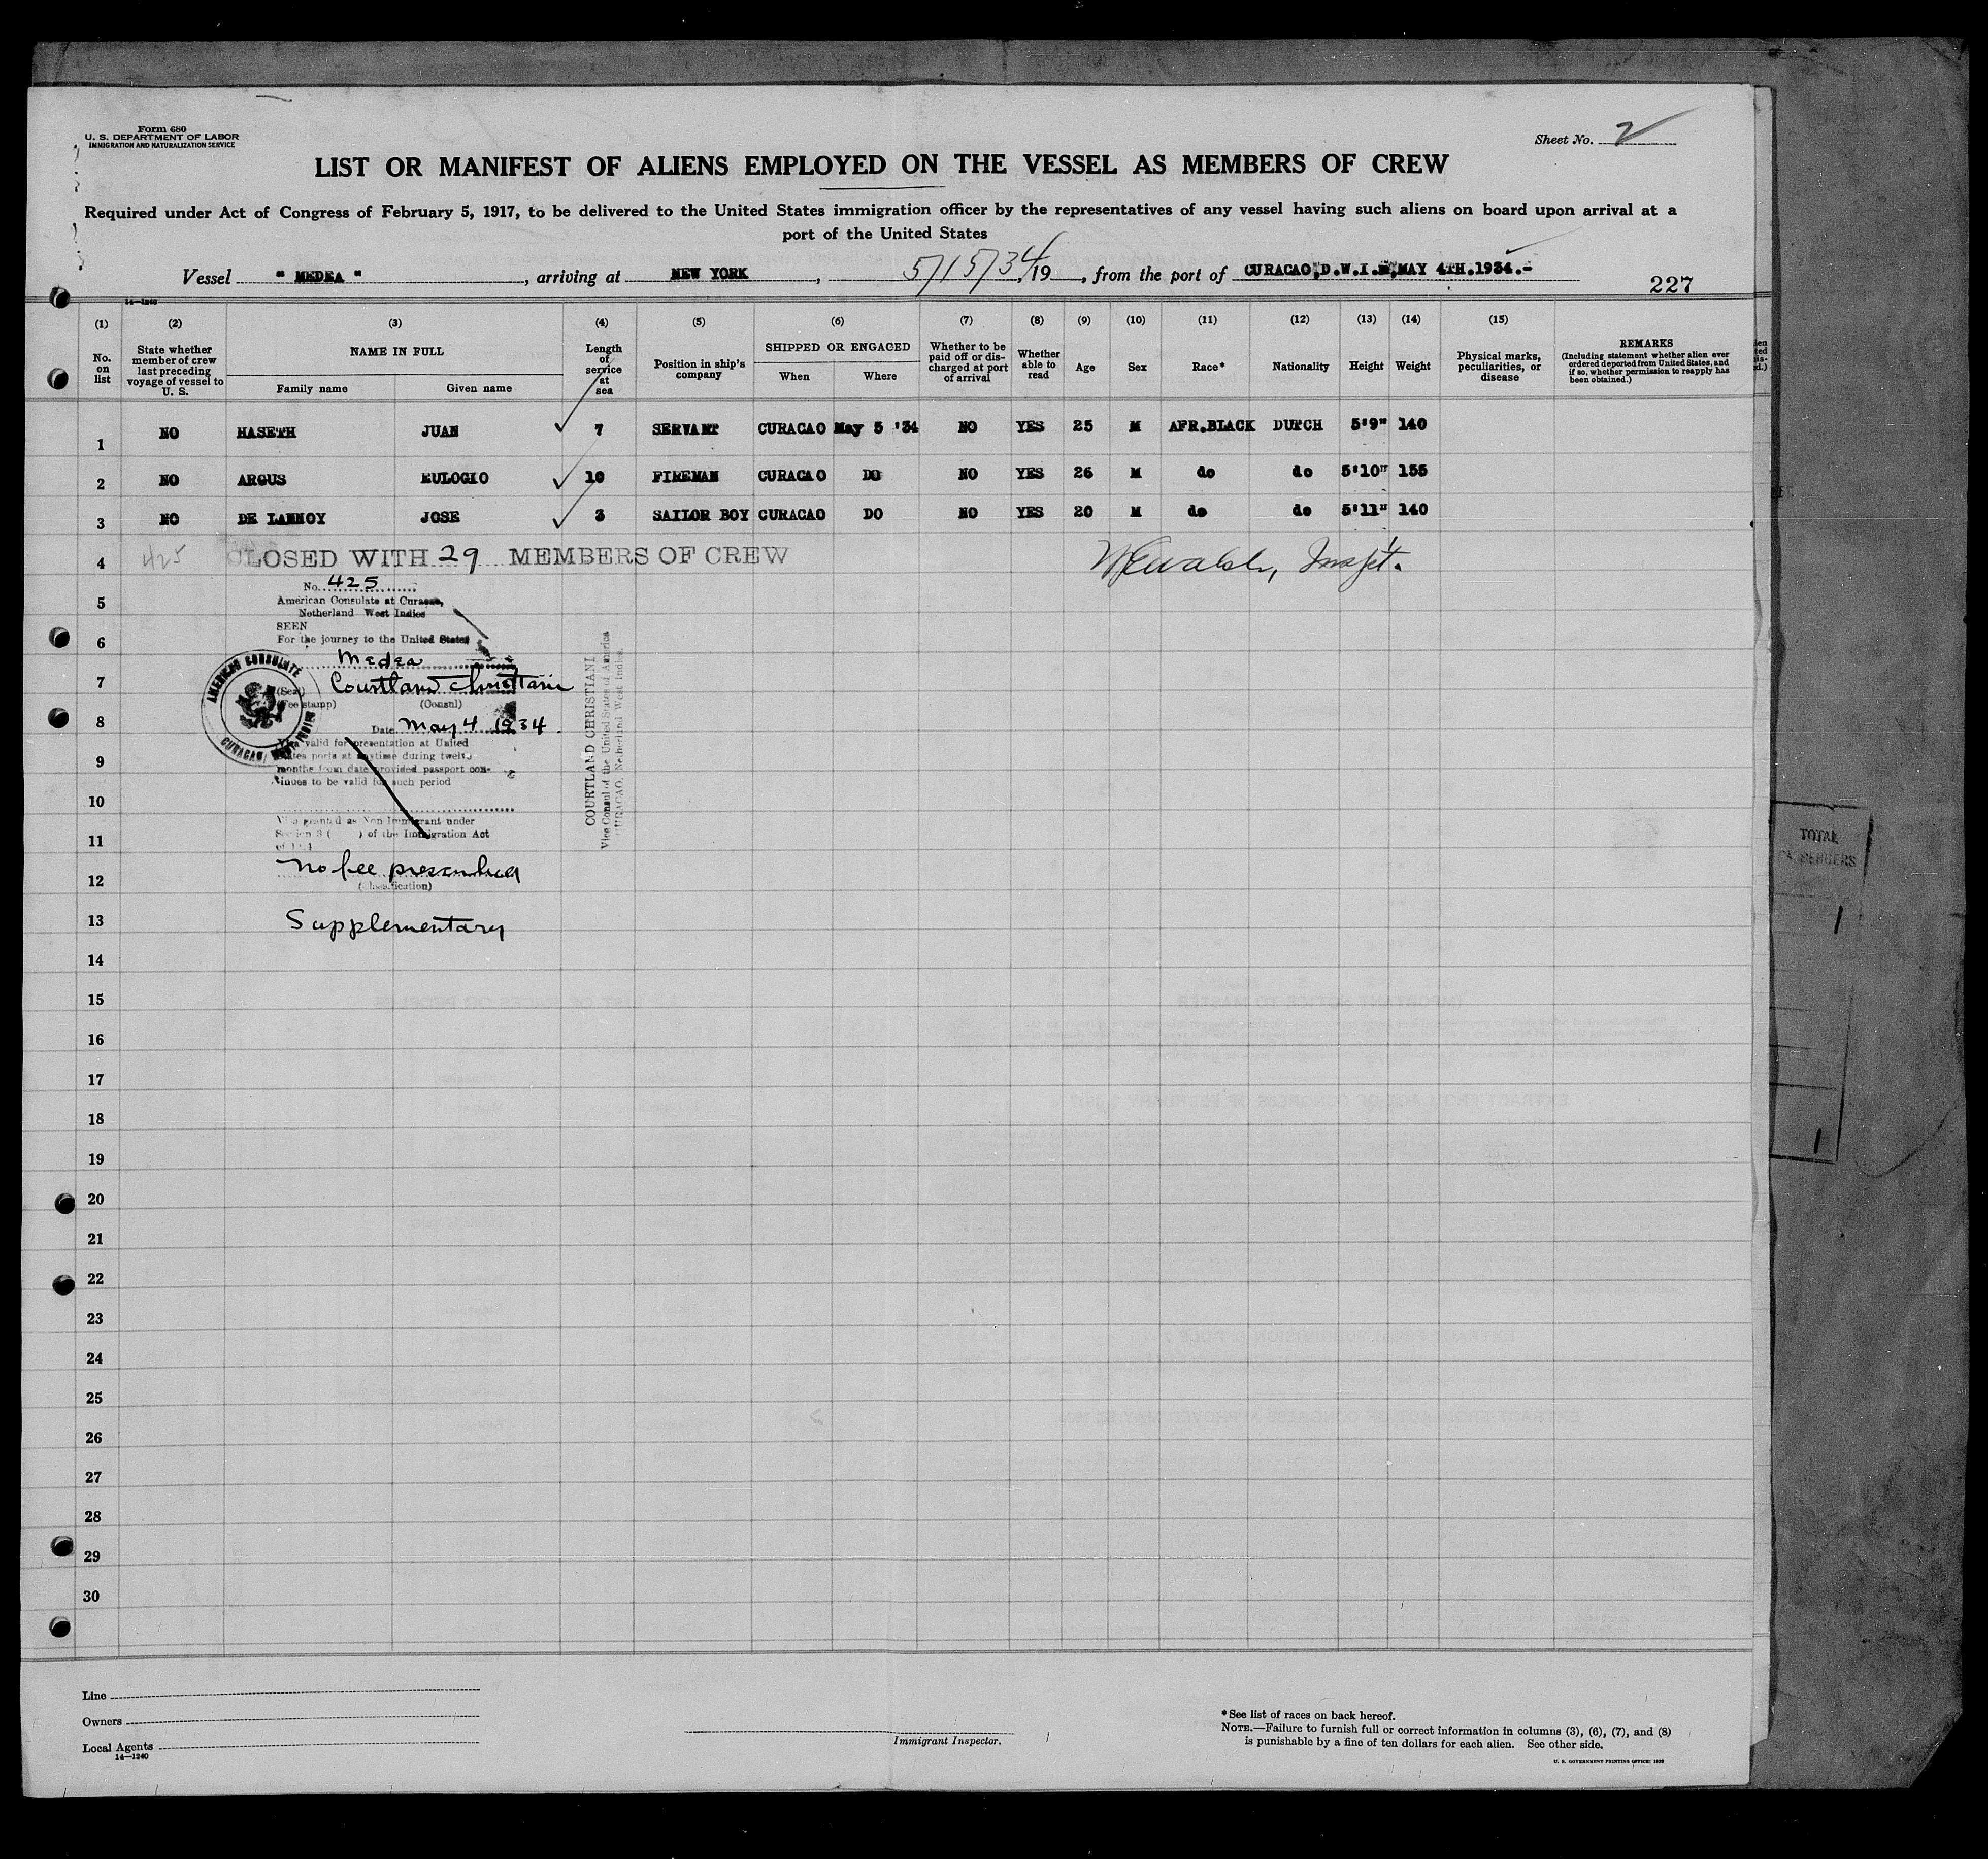 Form 680
U. S. DEPARTMENT OF LABOR
IMMIGRATION AND NATURALIZATION SERVICE
Sheet No. 2
LIST OR MANIFEST OF ALIENS EMPLOYED ON THE VESSEL AS MEMBERS OF CREW
Required under Act of Congress of February 5, 1917, to be delivered to the United States immigration officer by the representatives of any vessel having such aliens on board upon arrival at a
port of the United States
Vessel " MEDEA ", arriving at NEW YORK, 5/15/34, 19, from the port of CURACAO, D.W.I., MAY 4TH.1934.-
227
14—1240
(1) (2) (3) (4) (5) (6) (7) (8) (9) (10) (11) (12) (13) (14) (15)
No. on list
State whether member of crew last preceding voyage of vessel to U. S.
NAME IN FULL
Family name Given name
Length of service at sea
Position in ship's company
SHIPPED OR ENGAGED
When Where
Whether to be paid off or discharged at port of arrival
Whether able to read
Age
Sex
Race*
Nationality
Height
Weight
Physical marks, peculiarities, or disease
REMARKS
(Including statement whether alien ever ordered deported from United States, and if so, whether permission to reapply has been obtained.)
1 NO HASETH JUAN 7 SERVANT CURACAO May 5 '34 NO YES 25 M AFR.BLACK DUTCH 5'9" 140
2 NO ARGUS EULOGIO 10 FIREMAN CURACAO DO NO YES 26 M do do 5'10" 155
3 NO DE LANNOY JOSE 3 SAILOR BOY CURACAO DO NO YES 20 M do do 5'11" 140
4 425 CLOSED WITH 29 MEMBERS OF CREW
No. 425
5 American Consulate at Curacao,
Netherland West Indies
SEEN
6 For the journey to the United States
Medea
7 (Seal) Courtland Christiani
(Fee stamp) (Consul)
8 Date May 4 1934.
AMERICAN CONSULATE
CURACAO, WEST INDIES
Visa valid for presentation at United
9 States ports at anytime during twelve
months from date provided passport con-
tinues to be valid for such period
COURTLAND CHRISTIANI
Vice Consul of the United States of America
CURACAO, Netherland West Indies.
10
Visa granted as Non Immigrant under
11 Section 3 ( ) of the Immigration Act
No fee prescribed
12 (Classification)
13 Supplementary
14
15
16
17
18
19
20
21
22
23
24
25
26
27
28
29
30
Line
Owners
Local Agents
14—1240
Immigrant Inspector.
*See list of races on back hereof.
NOTE.—Failure to furnish full or correct information in columns (3), (6), (7), and (8)
is punishable by a fine of ten dollars for each alien. See other side.
U. S. GOVERNMENT PRINTING OFFICE: 1933
TOTAL
PASSENGERS
1
1